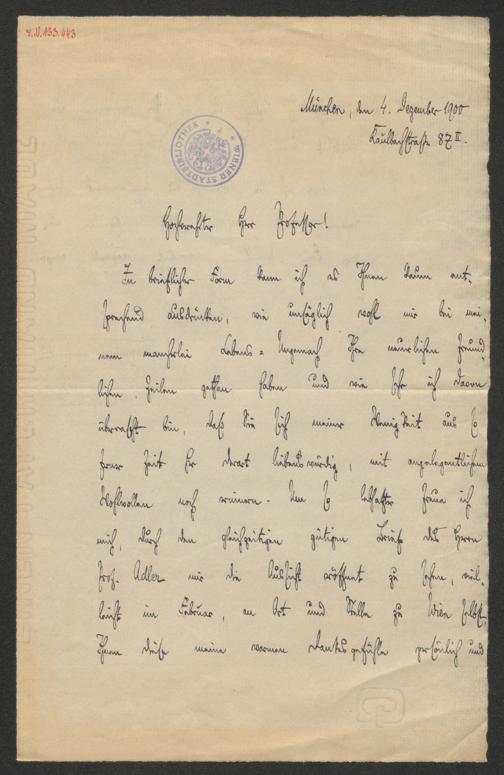 München, den 4. Dezember 1900
Kaulbachstraße 87 II.
WIENER STADTBIBLIOTHEK
Hochverehrter Herr Professor!
In brieflicher Form kann ich es Ihnen kaum ent-
sprechend ausdrücken, wie unsäglich wohl mir bei mei-
nem mancherlei Lebens-Ungemach Ihre neuerlichen freund-
lichen Zeilen gethan haben und wie sehr ich davon
überrascht bin, daß Sie sich meiner Wenigkeit aus so
ferner Zeit her derart liebenswürdig, mit angelegentlichem
Wohlwollen noch erinnern. Um so lebhafter freue ich
mich, durch den gleichzeitigen gütigen Brief des Herrn
Prof. Adler mir die Aussicht eröffnet zu sehen, viel-
leicht im Februar, an Ort und Stelle zu Wien selbst,
Ihnen diese meine warmen Dankesgefühle persönlich und